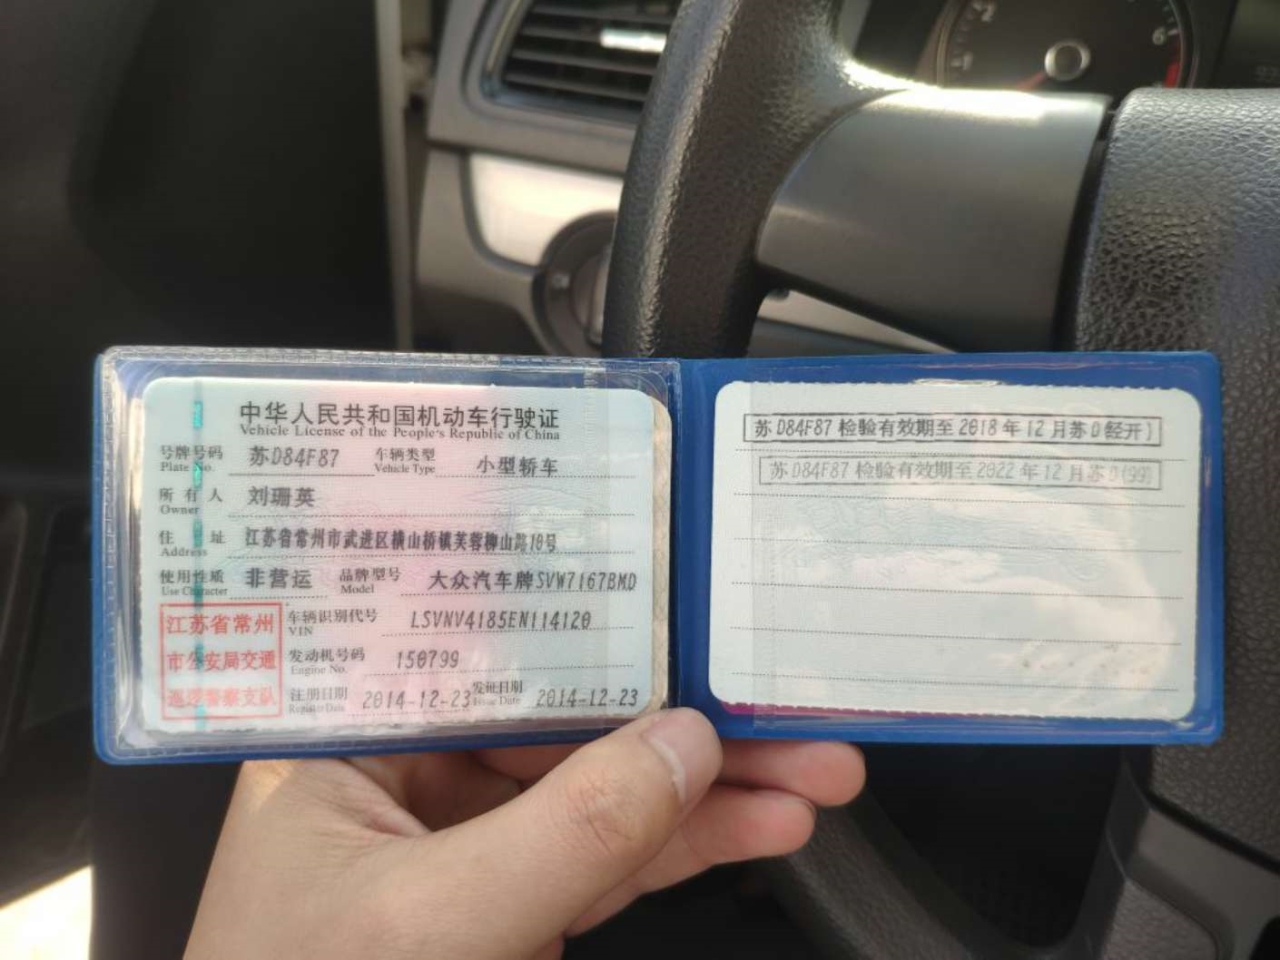 中华人民共和国机动车行驶证
Vehicle License of the People's Republic of China
号牌号码 苏D84F87 车辆类型 小型轿车
Plate No. Vehicle Type
所有人 刘珊英
Owner
住址 江苏省常州市武进区横山桥镇芙蓉柳山路10号
Address
使用性质 非营运 品牌型号 大众汽车牌SVW7167BMD
Use Character Model
江苏省常州 车辆识别代号 LSVNV4185EN114120
VIN
市公安局交通 发动机号码 150799
Engine No.
巡逻警察支队 注册日期 2014-12-23 发证日期 2014-12-23
Register Date Issue Date
苏D84F87 检验有效期至2018年12月苏D(经开)
苏D84F87 检验有效期至2022年12月苏D(99)
6